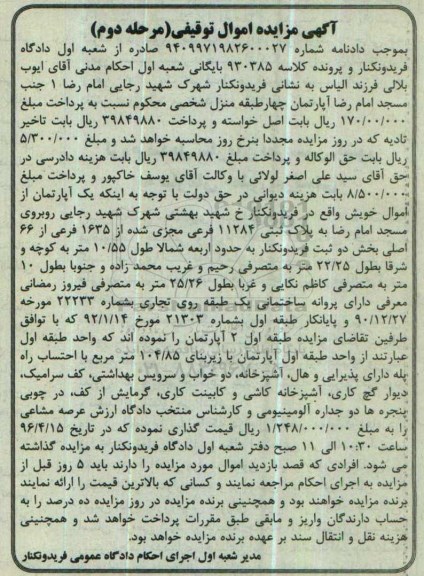 آگهی مزایده اموال توقیفی(مرحله دوم)
بموجب دادنامه شماره ۹۴۰۹۹۷۱۹۸۲۶۰۰۰۲۷ صادره از شعبه اول دادگاه
فریدونکنار و پرونده کلاسه ۹۳۰۳۸۵ بایگانی شعبه اول احکام مدنی آقای ایوب
بلالی فرزند الیاس به نشانی فریدونکنار شهرک شهید رجایی امام رضا ۱ جنب
مسجد امام رضا آپارتمان چهارطبقه منزل شخصی محکوم نسبت به پرداخت مبلغ
۱۷۰/۰۰۰/۰۰۰ ریال بابت اصل خواسته و پرداخت ۳۹۸۴۹۸۸۰ ریال بابت تاخیر
تادیه که در روز مزایده مجددا بنرخ روز محاسبه خواهد شد و مبلغ ۵/۳۰۰/۰۰۰
ریال بابت حق الوکاله و پرداخت مبلغ ۳۹۸۴۹۸۸۰ ریال بابت هزینه دادرسی در
حق آقای سید علی اصغر لولائی با وکالت آقای یوسف خاکپور و پرداخت مبلغ
۸/۵۰۰/۰۰۰ بابت هزینه دیوانی در حق دولت با توجه به اینکه یک آپارتمان از
اموال خویش واقع در فریدونکنار خ شهید بهشتی شهرک شهید رجایی روبروی
مسجد امام رضا به پلاک ثبتی ۱۱۲۸۴ فرعی مجزی شده از ۱۶۳۵ فرعی از ۶۶
اصلی بخش دو ثبت فریدونکنار به حدود اربعه شمالا طول ۱۰/۵۵ متر به کوچه و
شرقا بطول ۲۲/۲۵ متر به متصرفی رحیم و غریب محمد زاده و جنوبا بطول ۱۰
متر به متصرفی کاظم نکایی و غربا بطول ۲۵/۲۶ متر به متصرفی فیروز رمضانی
معرفی دارای پروانه ساختمانی یک طبقه روی تجاری بشماره ۲۲۲۳۳ مورخه
۹۰/۱۲/۲۷ و پایانکار طبقه اول بشماره ۲۱۳۰۳ مورخ ۹۲/۱/۱۴ که با توافق
طرفین تقاضای مزایده طبقه اول ۲ آپارتمان را نموده اند که واحد طبقه اول
عبارتند از واحد طبقه اول آپارتمان با زیربنای ۱۰۴/۸۵ متر مربع با احتساب راه
پله دارای پذیرایی و هال، آشپزخانه، دو خواب و سرویس بهداشتی، کف سرامیک،
دیوار گچ کاری، آشپزخانه کاشی و کابینت کاری، گرمایش از کف، در چوبی
پنجره ها دو جداره آلومینیومی و کارشناس منتخب دادگاه ارزش عرصه مشاعی
را به مبلغ ۱/۲۴۸/۰۰۰/۰۰۰ ریال قیمت گذاری نموده که در تاریخ ۹۶/۴/۱۵
ساعت ۱۰:۳۰ الی ۱۱ صبح دفتر شعبه اول دادگاه فریدونکنار به مزایده گذاشته
می شود. افرادی که قصد بازدید اموال مورد مزایده را دارند باید ۵ روز قبل از
مزایده به اجرای احکام مراجعه نمایند و کسانی که بالاترین قیمت را ارائه نمایند
برنده مزایده خواهند بود و همچنینی برنده مزایده در روز مزایده ده درصد را به
حساب دارندگان واریز و مابقی طبق مقررات پرداخت خواهد شد و همچنینی
هزینه نقل و انتقال سند بر عهده برنده مزایده خواهد بود.
مدیر شعبه اول اجرای احکام دادگاه عمومی فریدونکنار